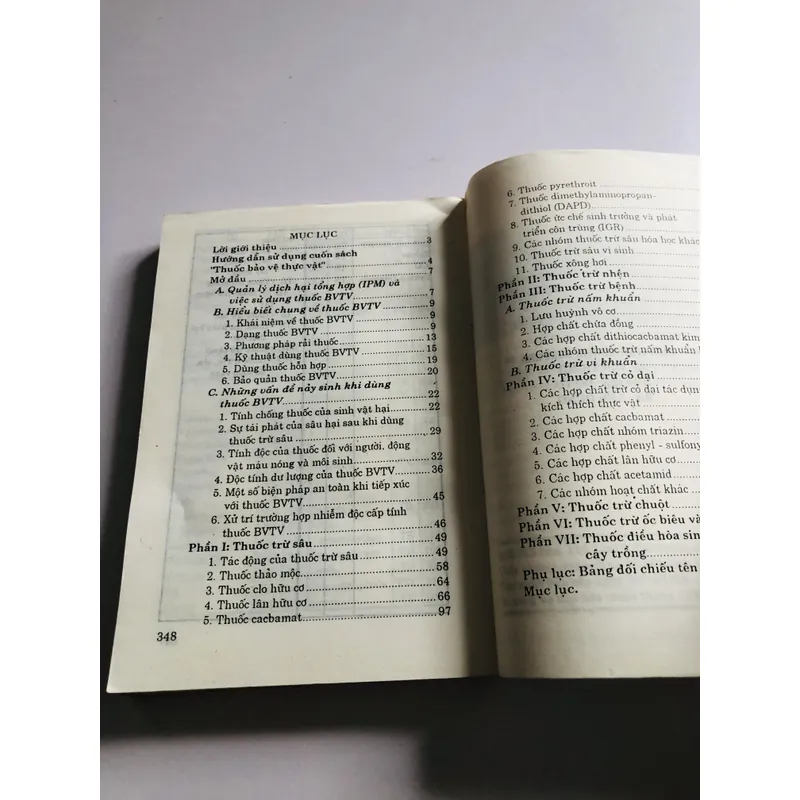 MỤC LỤC
Lời giới thiệu 3
Hướng dẫn sử dụng cuốn sách
"Thuốc bảo vệ thực vật" 4
Mở đầu 7
A. Quản lý dịch hại tổng hợp (IPM) và
việc sử dụng thuốc BVTV 7
B. Hiểu biết chung về thuốc BVTV 9
1. Khái niệm về thuốc BVTV 9
2. Dạng thuốc BVTV 9
3. Phương pháp rải thuốc 13
4. Kỹ thuật dùng thuốc BVTV 15
5. Dùng thuốc hỗn hợp 19
6. Bảo quản thuốc BVTV 20
C. Những vấn đề nảy sinh khi dùng
thuốc BVTV 22
1. Tính chống thuốc của sinh vật hại 22
2. Sự tái phát của sâu hại sau khi dùng
thuốc trừ sâu 29
3. Tính độc của thuốc đối với người, động
vật máu nóng và môi sinh 32
4. Độc tính dư lượng của thuốc BVTV 36
5. Một số biện pháp an toàn khi tiếp xúc
với thuốc BVTV 45
6. Xử trí trường hợp nhiễm độc cấp tính
thuốc BVTV 46
Phần I: Thuốc trừ sâu 49
1. Tác động của thuốc trừ sâu 49
2. Thuốc thảo mộc 58
3. Thuốc clo hữu cơ 64
4. Thuốc lân hữu cơ 66
5. Thuốc cacbamat 97
348
6. Thuốc pyrethroit
7. Thuốc dimethylaminopropan-
dithiol (DAPD)
8. Thuốc ức chế sinh trưởng và phát
triển côn trùng (IGR)
9. Các nhóm thuốc trừ sâu hóa học khác
10. Thuốc trừ sâu vi sinh
11. Thuốc xông hơi
Phần II: Thuốc trừ nhện
Phần III: Thuốc trừ bệnh
A. Thuốc trừ nấm khuẩn
1. Lưu huỳnh vô cơ
2. Hợp chất chứa đồng
3. Các hợp chất dithiocacbamat kim
4. Các nhóm thuốc trừ nấm khuẩn
B. Thuốc trừ vi khuẩn
Phần IV: Thuốc trừ cỏ dại
1. Các hợp chất trừ cỏ dại tác dụn
kích thích thực vật
2. Các hợp chất cacbamat
3. Các hợp chất nhóm triazin
4. Các hợp chất phenyl - sulfony
5. Các hợp chất lân hữu cơ
6. Các hợp chất acetamid
7. Các nhóm hoạt chất khác
Phần V: Thuốc trừ chuột
Phần VI: Thuốc trừ ốc biêu và
Phần VII: Thuốc điều hòa sin
cây trồng
Phụ lục: Bảng đối chiếu tên
Mục lục.